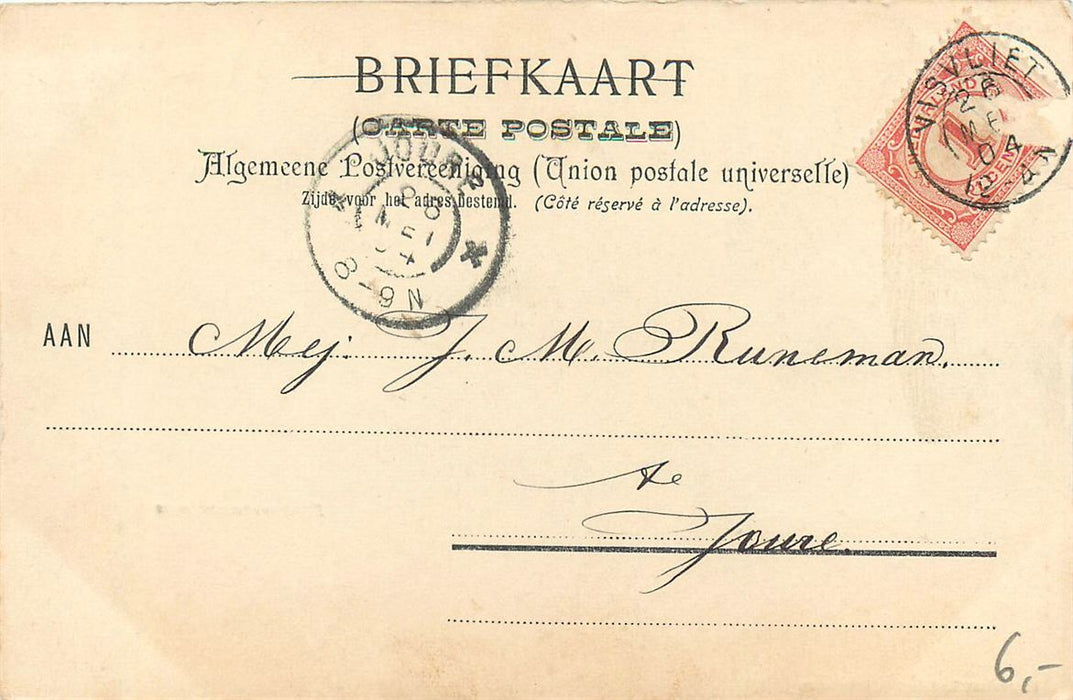 BRIEFKAART
(CARTE POSTALE)
Algemeene Postvereeniging (Union postale universelle)
Zijde voor het adres bestemd. (Côté réservé à l'adresse).
VISVLIET
26
MEI
04
1
JOURE
MEI
04
6-8 N
AAN Mej. J. M. Runeman.
te
Joure.
6,-